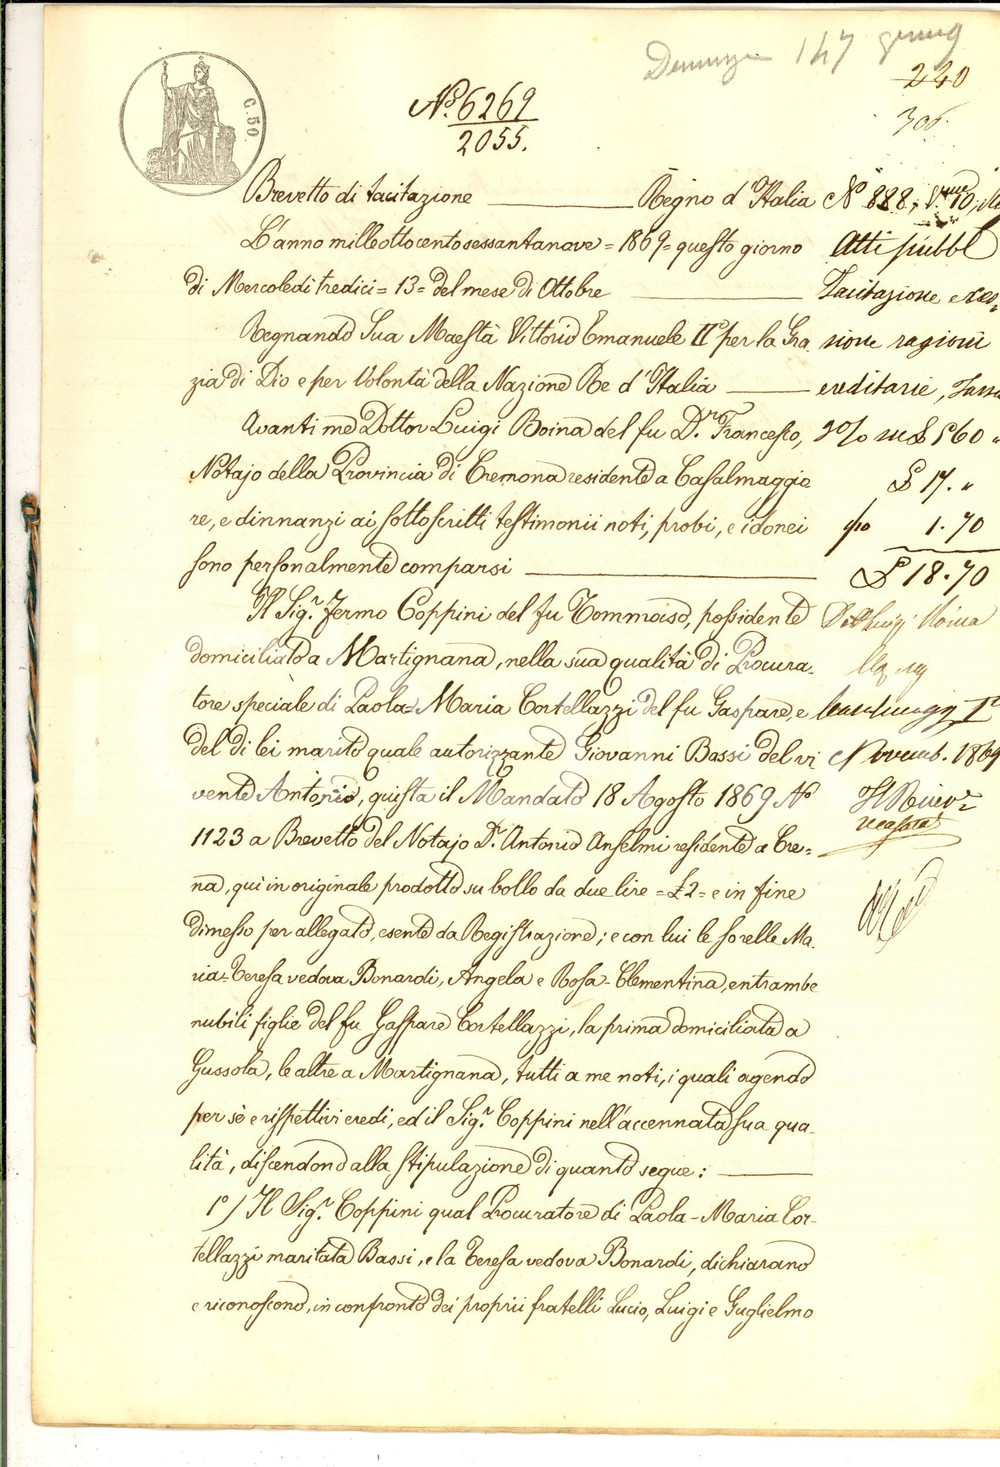 C. 50.
N.° 6269
2055.
147
240
306.
Brevetto di tacitazione ——— Regno d'Italia
L'anno milleottocentosessantanove = 1869 = questo giorno
di Mercoledì tredici = 13 = del mese di Ottobre ———
Regnando Sua Maestà Vittorio Emanuele II° per la Gra-
zia di Dio e per Volontà della Nazione Re d'Italia ———
Avanti me Dottor Luigi Boina del fu D.r Francesco,
Notajo della Provincia di Cremona residente a Casalmaggio
re, e dinnanzi ai sottoscritti testimonii noti, probi, e idonei
sono personalmente comparsi ———
Il Sig.r Fermo Coppini del fu Tommaso, possidente
domiciliato a Martignana, nella sua qualità di Procura-
tore speciale di Paola-Maria Cortellazzi del fu Gaspare, e
del di lei marito quale autorizzante Giovanni Bassi del vi
vente Antonio, giusta il Mandato 18 Agosto 1869 N°
1123 a Brevetto del Notajo D.r Antonio Anselmi residente a Cre=
na, quì in originale prodotto su bollo da due lire = £2 = e in fine
dimesso per allegato, esente da Registrazione; e con lui le sorelle Ma-
ria-Teresa vedova Bonardi, Angela e Rosa-Clementina, entrambe
nubili figlie del fu Gaspare Cortellazzi, la prima domiciliata a
Gussola, le altre a Martignana, tutti a me noti, i quali agendo
per sè e rispettivi eredi, ed il Sig.r Coppini nell'accennata sua qua-
lità, discendono alla stipulazione di quanto segue: ———
1°) Il Sig.r Coppini qual Procuratore di Paola-Maria Cor-
tellazzi maritata Bassi, e la Teresa vedova Bonardi, dichiarano
e riconoscono, in confronto dei proprii fratelli Lucio, Luigi e Guglielmo
N° 888
Atti pubbl
Tacitazione e ces=
sione ragioni
ereditarie, Tassa
3% su £ 560 "
£ 17. "
1.70
£ 18.70
Dott Luigi Boina
Novemb. 1869
Il Ricev.e